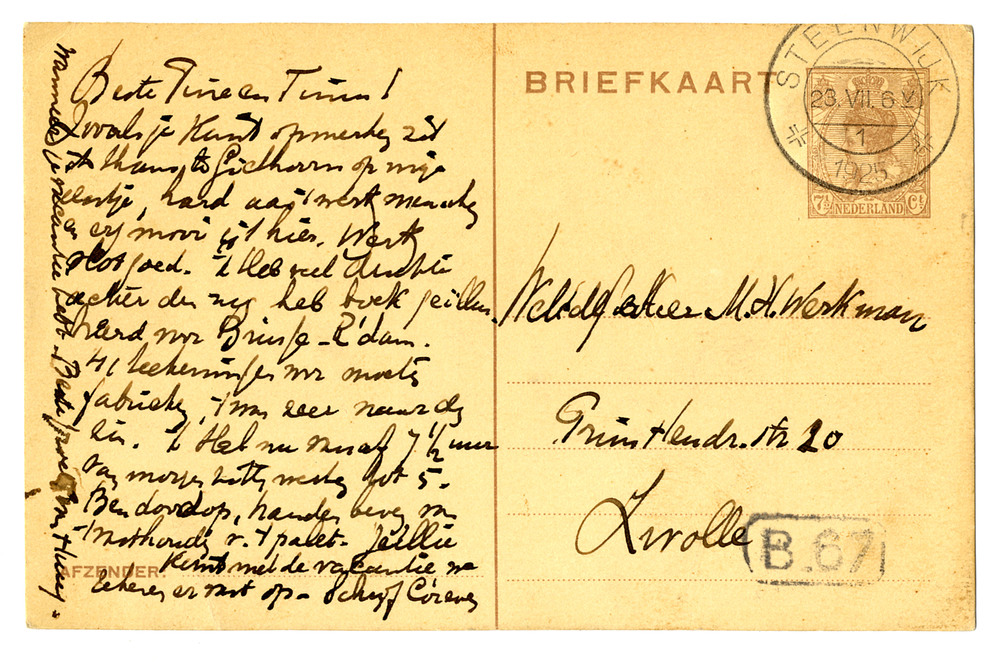 Beste Tine en Timen!
Zooals je Kunt opmerken zit
ik thans te Giethoorn op mijn
eentje, hard aan 't werk menschen
en mooi is 't hier. Werk
vlot goed. 'k Heb veel drukte
achter den rug heb boek geillus-
treerd voor Brusse - R'dam.
41 teekeningen voor moeten
fabrieken, 't was zeer naar den
zin. 'k Heb nu vanaf 7 1/2 uur
van morgen zitten werken tot 5-
Ben doodop, handen beven van
't vasthouden v. 't palet - Jullie
Kunt met de vacantie na
op - Schrijf
wanneer je vacantie hebt - Beste groeten van
BRIEFKAART
STEENWIJK
23. VII. 6 V
1
1925
7½ NEDERLAND Ct
WelEdlgeb. Heer M. H. Werkman
Prins Hendr. str 20
Zwolle
B.67
AFZENDER: